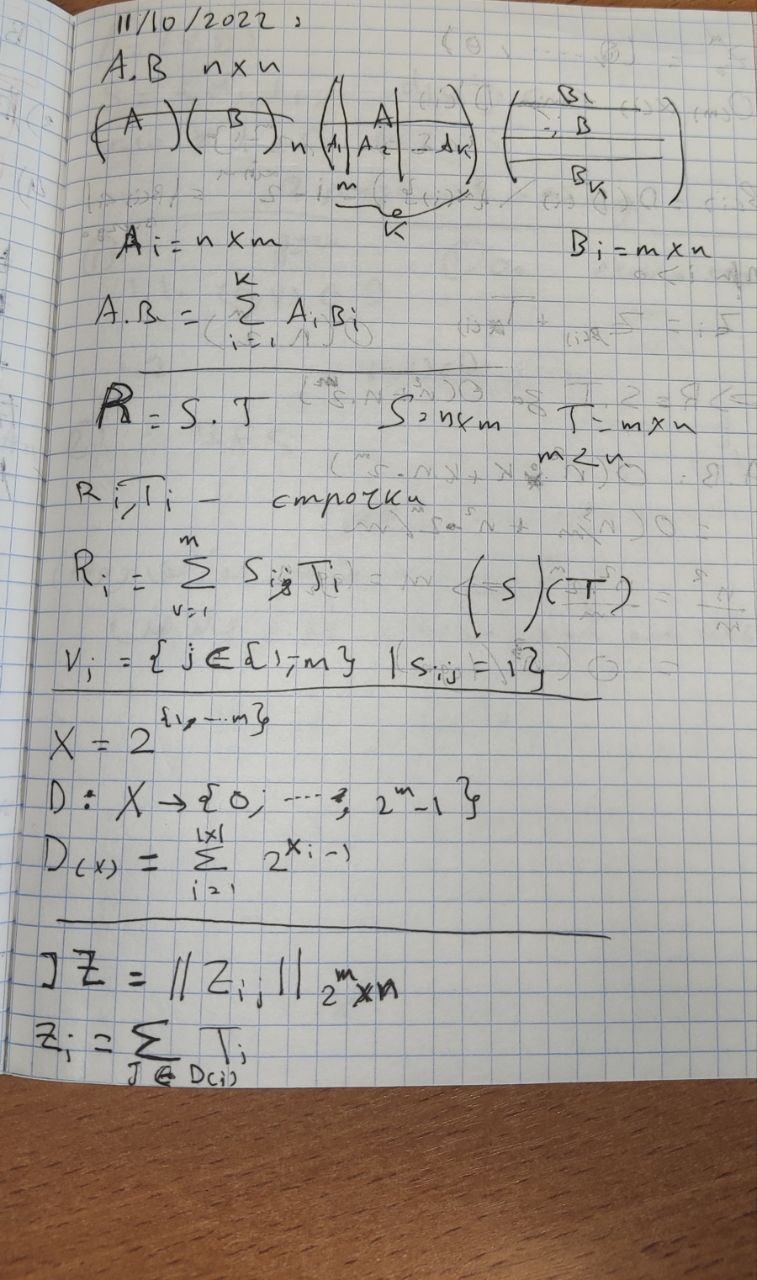 11/10/2022 ,
A.B n×n
(A)(B) n (A A₁ A₂ - Aₖ) (B₁ -, B Bₖ)
m
K
Aᵢ = n×m Bᵢ = m×n
A.B = ∑ᵢ₌₁ᴷ Aᵢ Bᵢ
R = S . T S = n×m T = m×n
m ≤ n
Rᵢ, Tᵢ - строчки
Rᵢ = ∑ᵥ₌₁ᵐ Sᵢⱼ Tᵢ (S)(T)
Vᵢ = { j ∈ {1,-m} | Sᵢⱼ = 1}
X = 2^{1, ... m}
D : X → {0; ..., 2ᵐ-1}
D(x) = ∑ᵢ₌₁^|x| 2^(xᵢ-1)
] Z = ||Zᵢⱼ|| 2ᵐ×n
Zᵢ = ∑ J ∈ D(i) Tᵢ